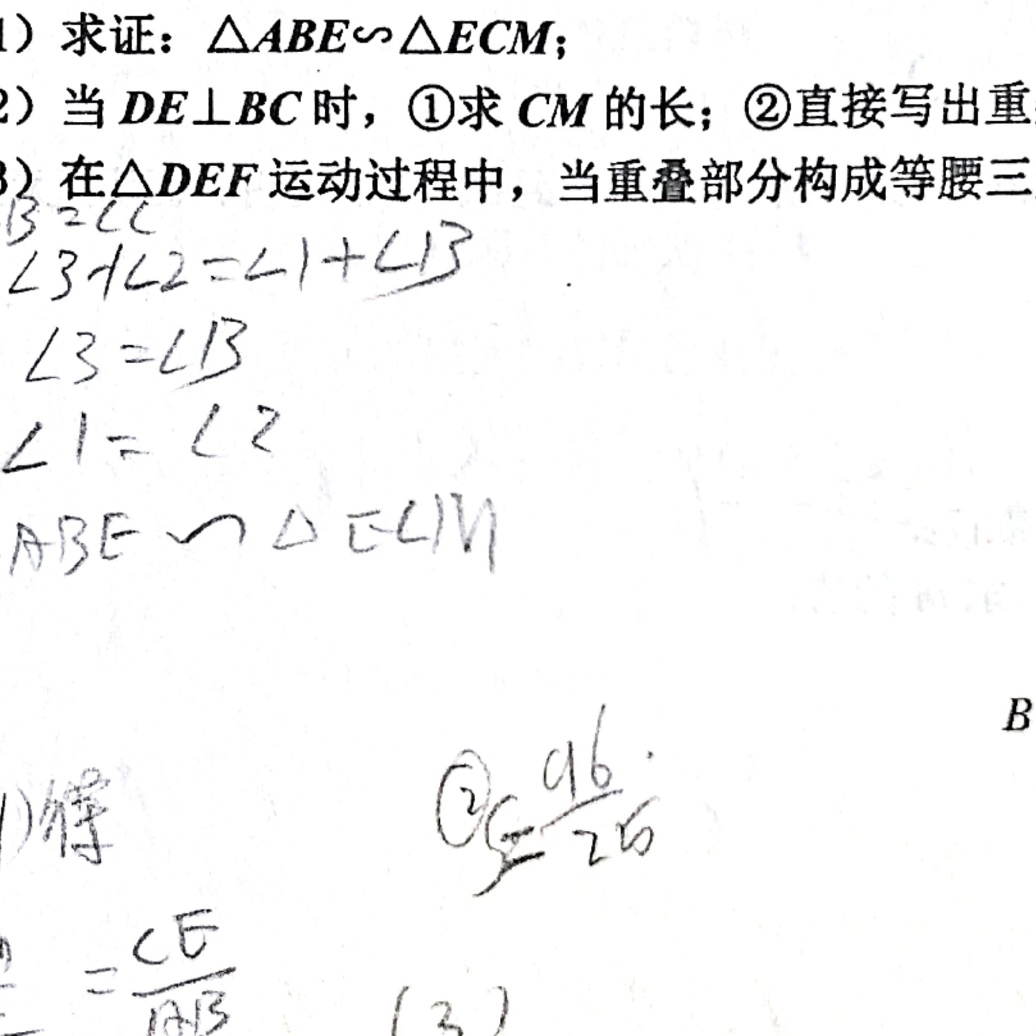 1）求证：△ABE∽△ECM；
2）当 DE⊥BC 时，①求 CM 的长；②直接写出重
3）在△DEF 运动过程中，当重叠部分构成等腰三
B=∠C
∠3+∠2=∠1+∠B
∠3=∠B
∠1=∠2
ABE∽△ECM
B
1)得
②S=96/25
=CE/AB
(3)